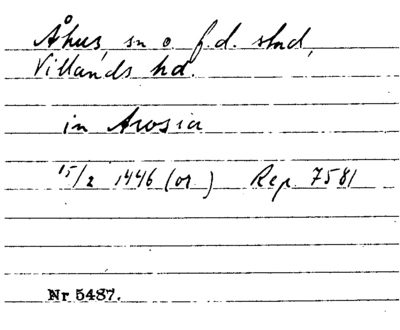 Åhus, sn o. f.d. stad,
Villands hd.
in Arosia
15/2 1446 (or) Rep 7581
Nr 5487.